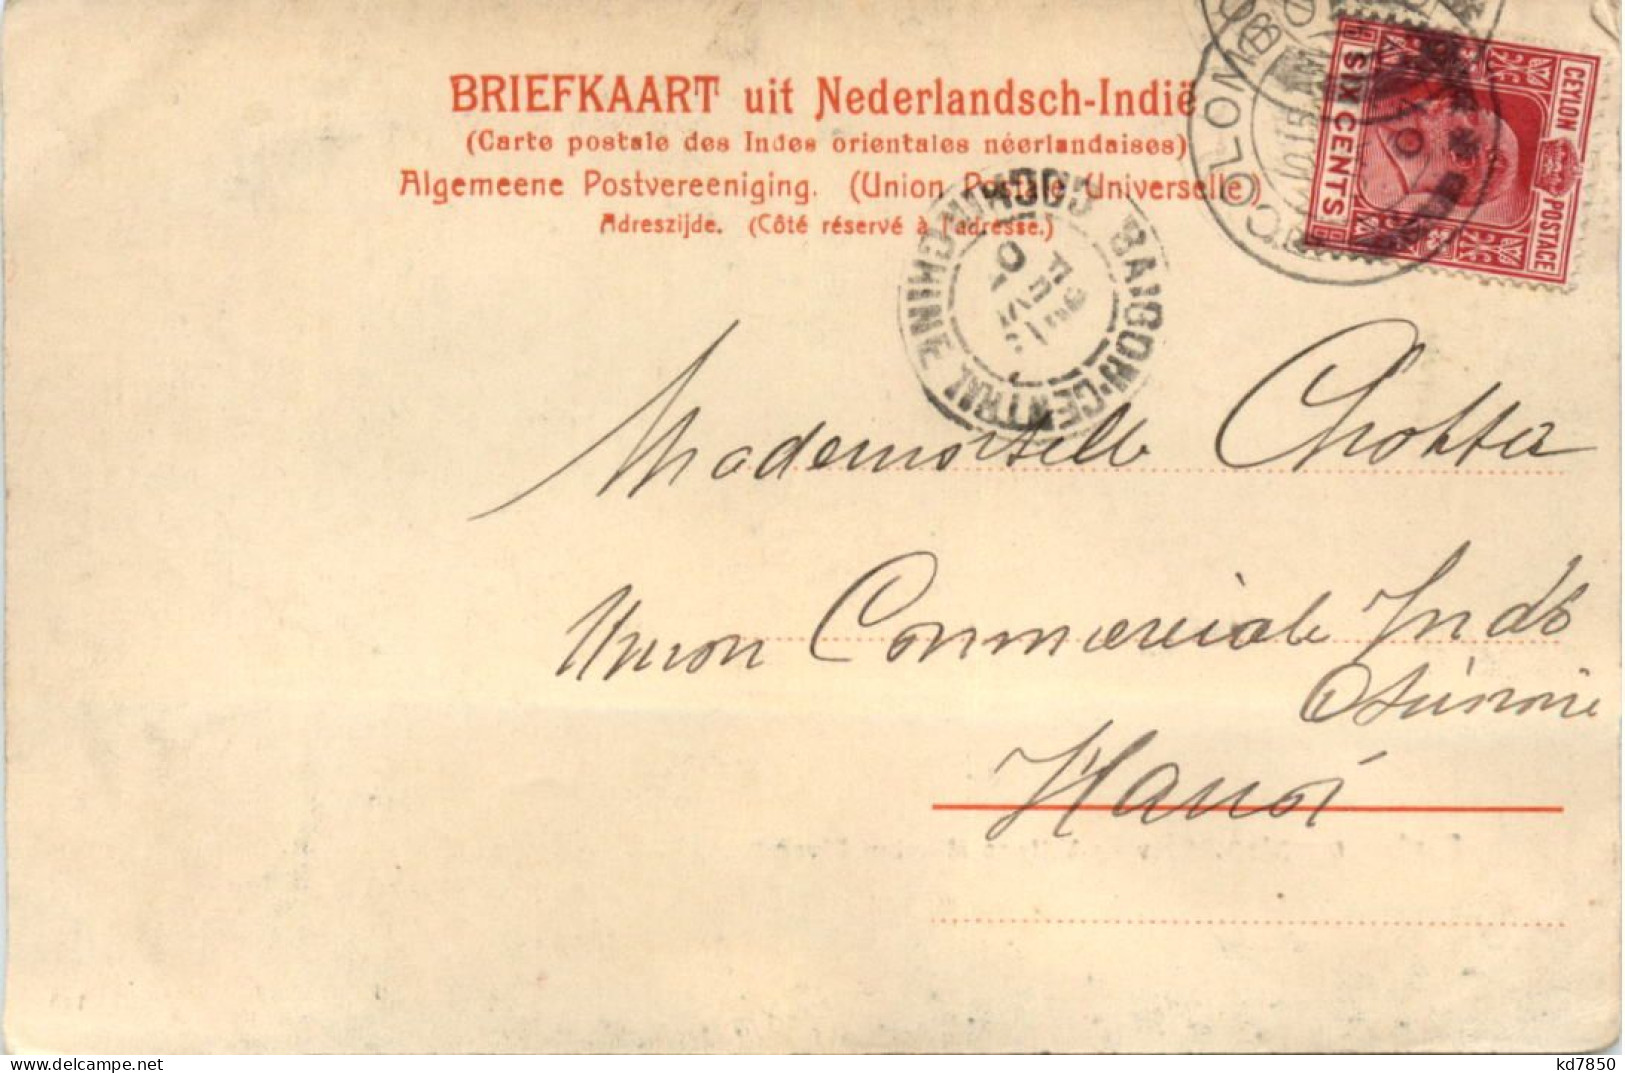 BRIEFKAART uit Nederlandsch-Indië
(Carte postale des Indes orientales néerlandaises)
Algemeene Postvereeniging. (Union Postale Universelle)
Adreszijde. (Côté réservé à l'adresse.)
CEYLON POSTAGE
SIX CENTS
COLOMBO
SAIGON-CENTRAL
COCHINCHINE
Mademoiselle
Union Commerciale Indo
Chinoise
Hanoi
© www.delcampe.net
kd7850